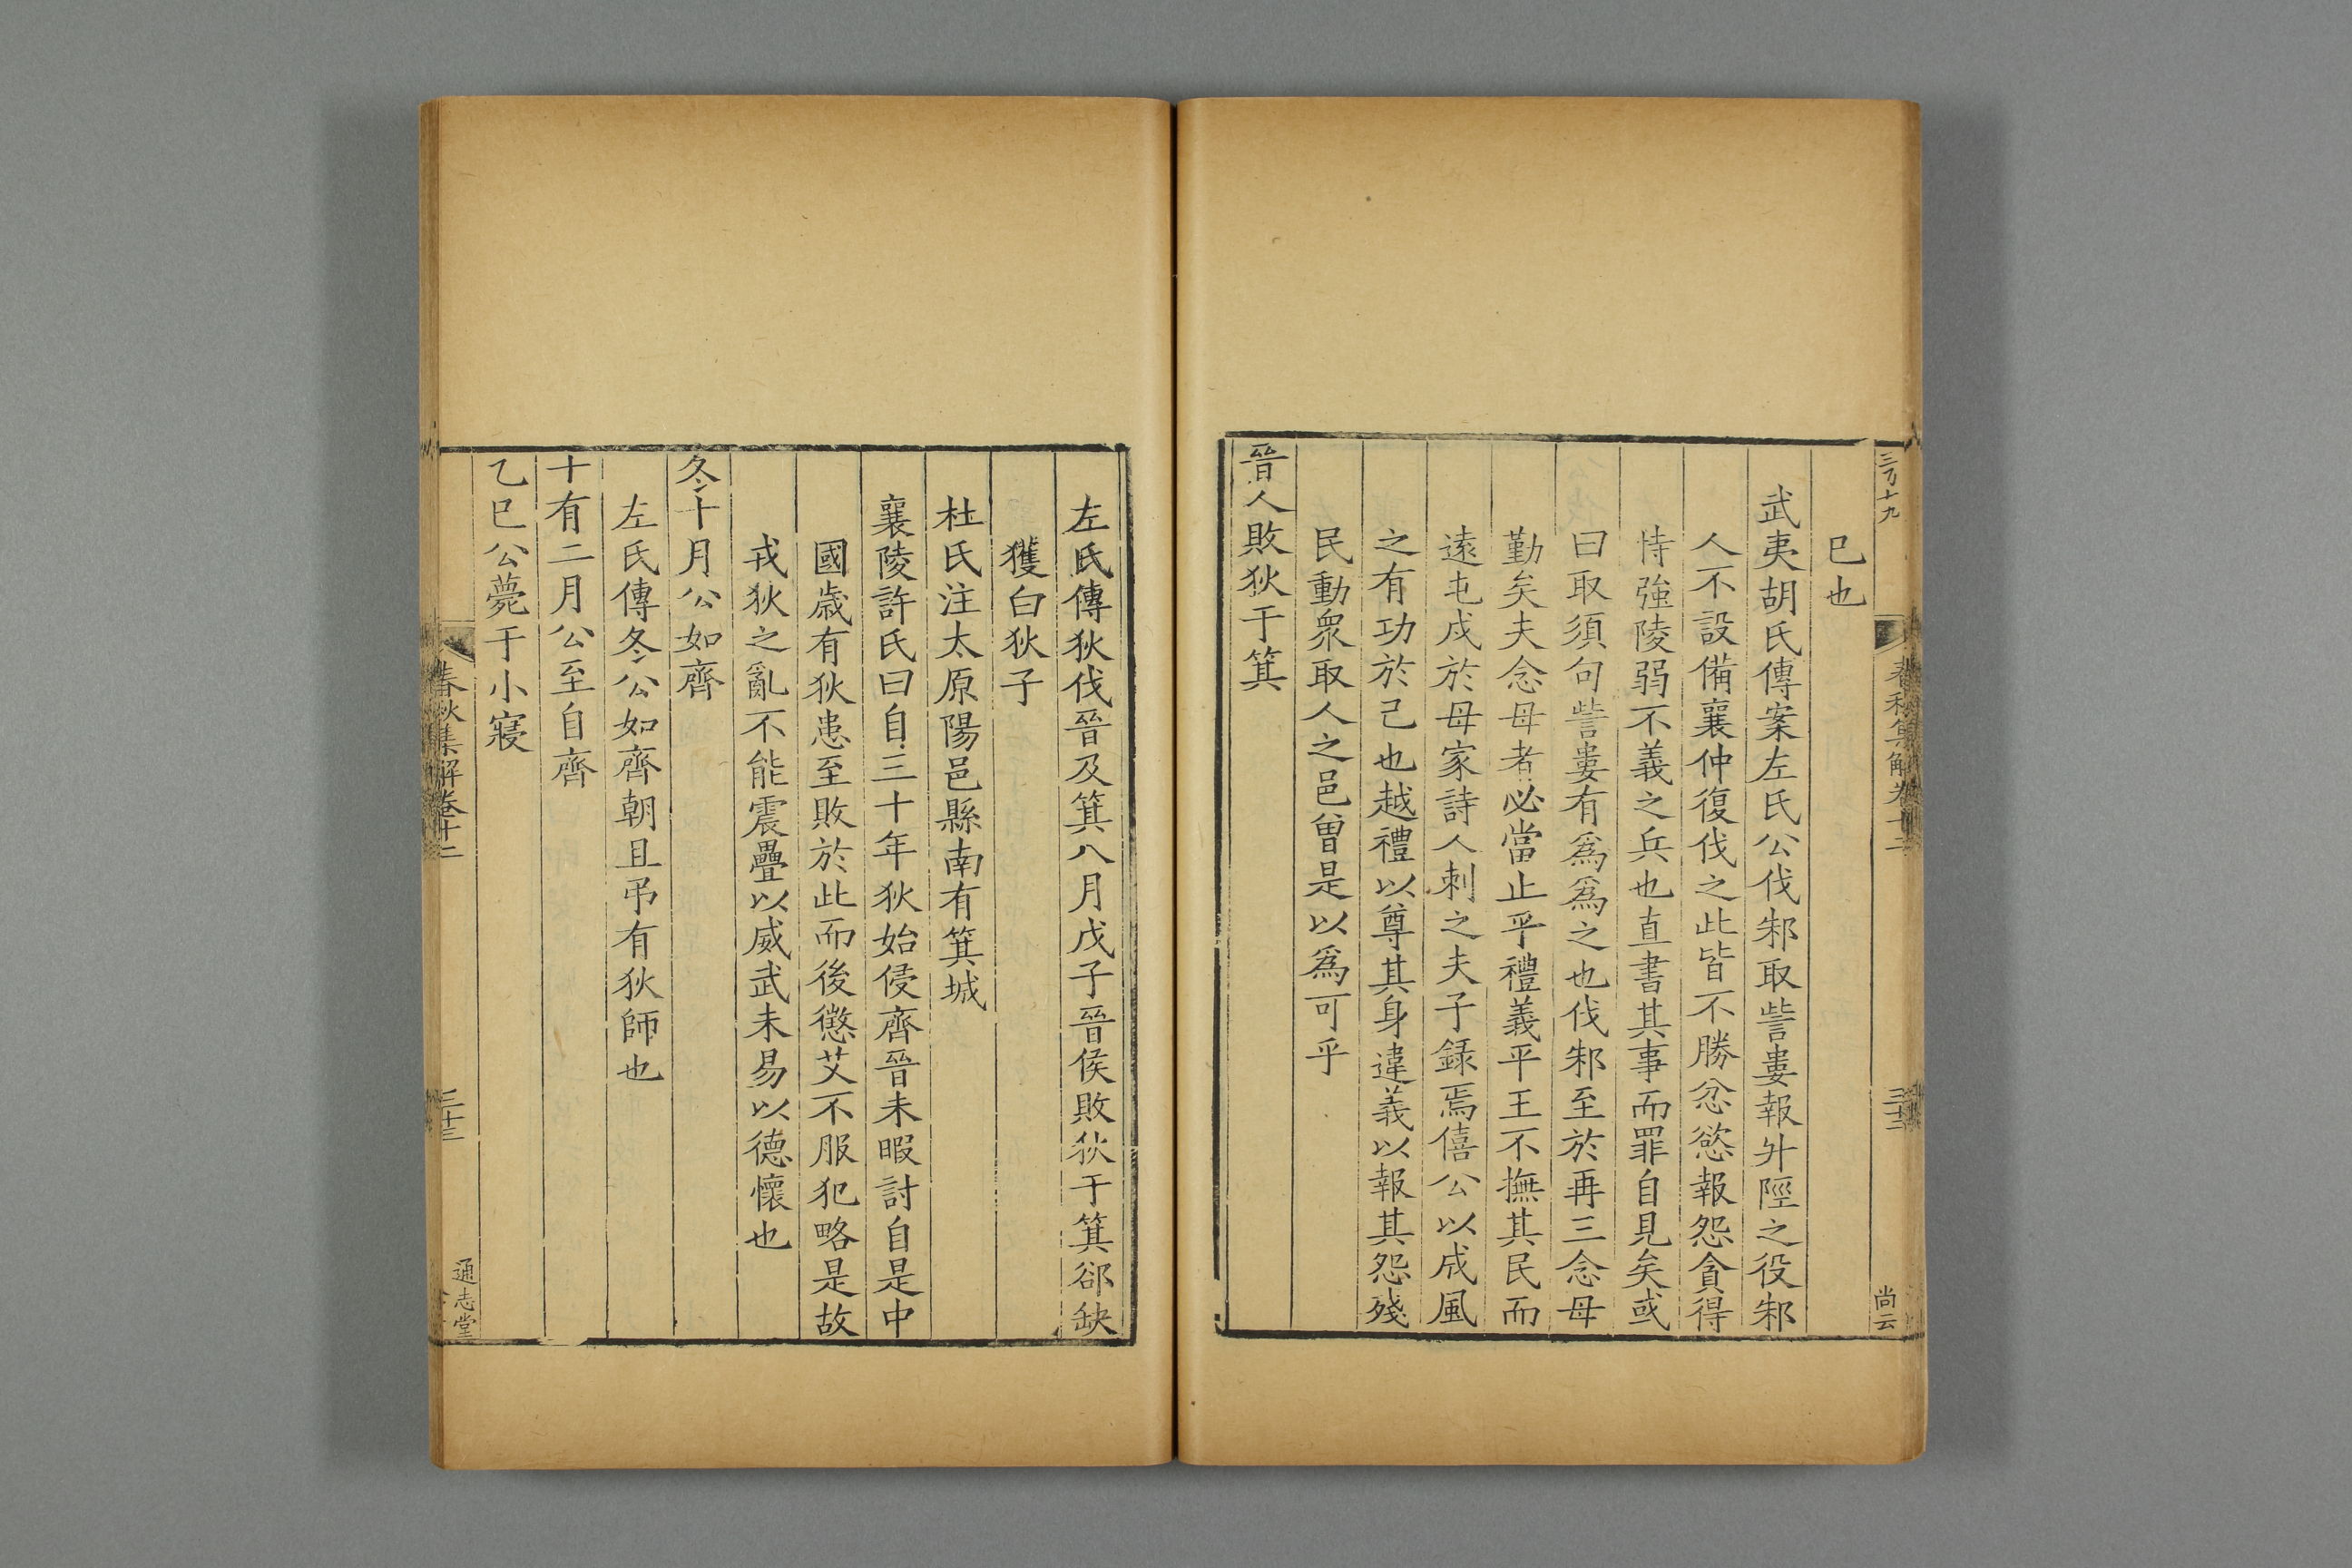 三百十九
春秋集解卷十二
三十二
尚云
巳也
武夷胡氏傳案左氏公伐邾取訾婁報升陘之役邾
人不設備襄仲復伐之此皆不勝忿慾報怨貪得
恃強陵弱不義之兵也直書其事而罪自見矣或
曰取須句訾婁有爲爲之也伐邾至於再三念母
勤矣夫念母者必當止乎禮義平王不撫其民而
遠屯戍於母家詩人刺之夫子錄焉僖公以成風
之有功於己也越禮以尊其身違義以報其怨殘
民動衆取人之邑曾是以爲可乎
晉人敗狄于箕
左氏傳狄伐晉及箕八月戊子晉侯敗狄于箕郤缺
獲白狄子
杜氏注太原陽邑縣南有箕城
襄陵許氏曰自三十年狄始侵齊晉未暇討自是中
國歲有狄患至敗於此而後懲艾不服犯略是故
戎狄之亂不能震疊以威武未易以德懷也
冬十月公如齊
左氏傳冬公如齊朝且弔有狄師也
十有二月公至自齊
乙巳公薨于小寢
春秋集解卷十二
三十三
通志堂